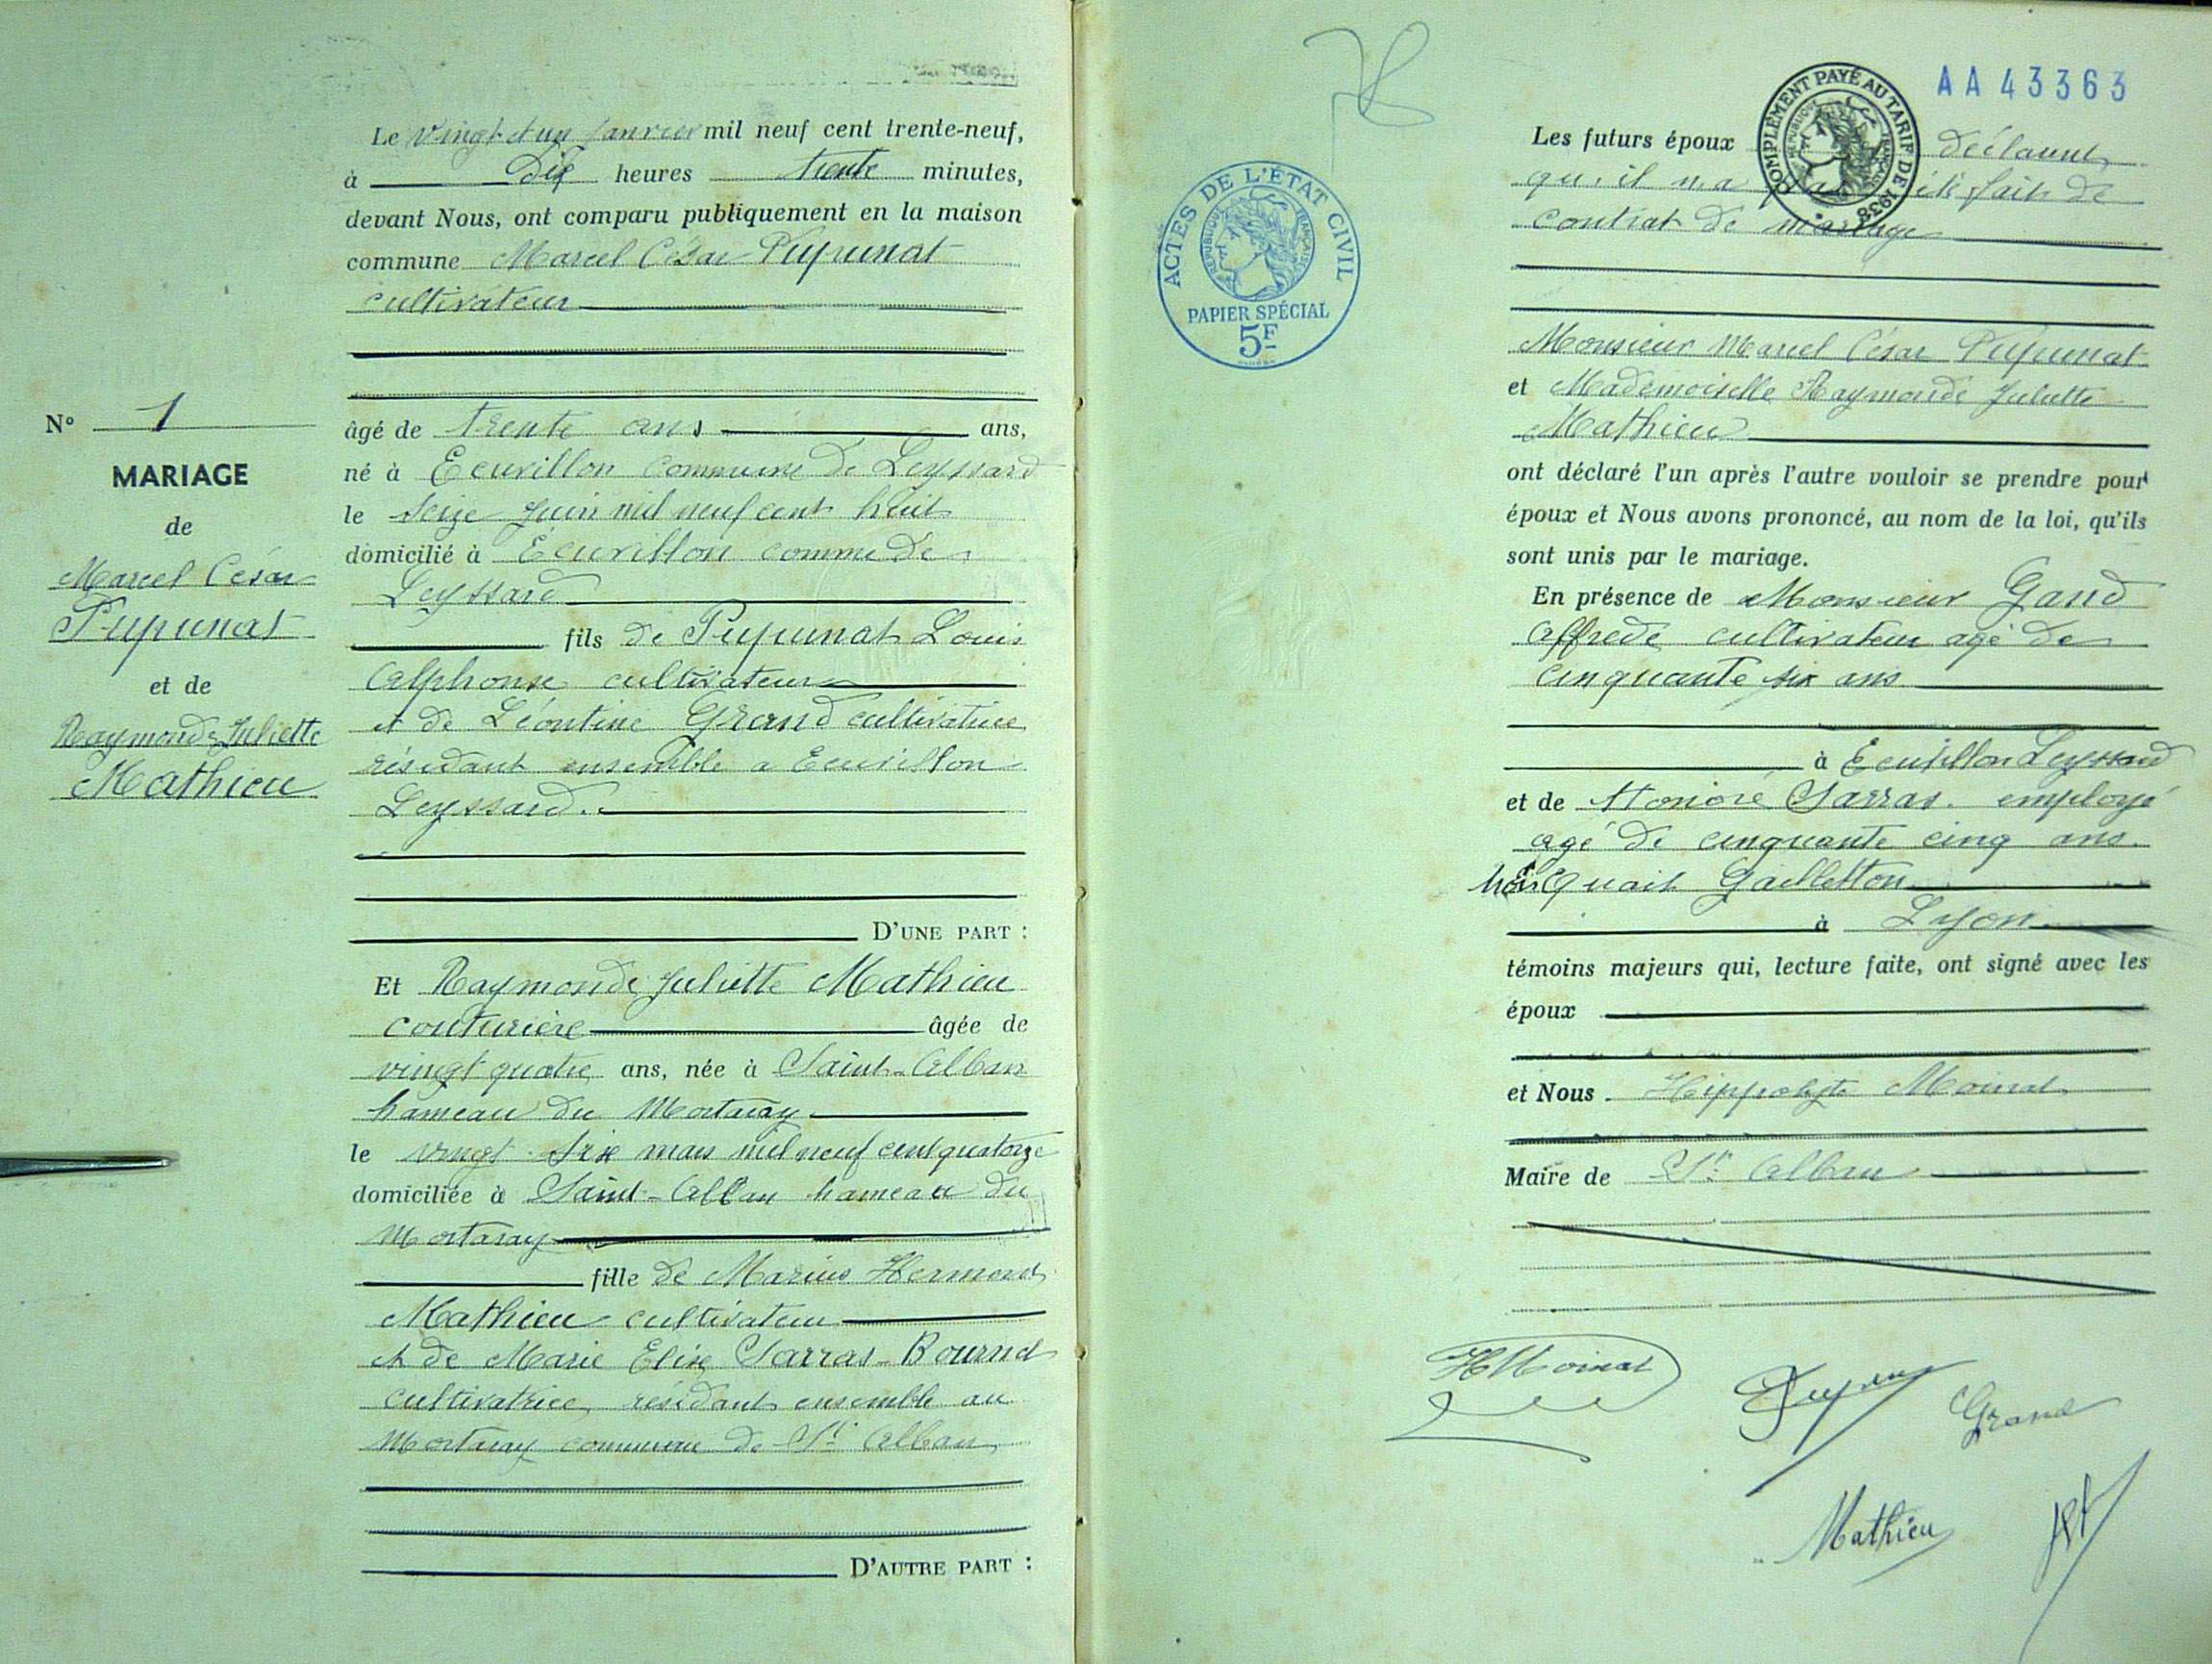 Le vingt et un Janvier mil neuf cent trente-neuf,
à Dix heures trente minutes,
devant Nous, ont comparu publiquement en la maison
commune Marcel César Pupunat
cultivateur
âgé de trente ans ans,
né à Ecuvillon commune de Leyssard
le seize Juin mil neuf cent huit
domicilié à Ecuvillon comme de
Leyssard
fils de Pupunat Louis
Alphonse cultivateur
et de Léontine Grand cultivatrice
résidant ensemble a Ecuvillon
Leyssard.
D'UNE PART :
Et Raymonde Juliette Mathieu
couturière âgée de
vingt quatre ans, née à Saint-Alban
hameau du Mortaray
le vingt six mars mil neuf cent quatorze
domiciliée à Saint-Alban hameau du
Mortaray
fille de Marius Hermond
Mathieu cultivateur
et de Marie Elise Sarras-Bournet
cultivatrice, résidant ensemble au
Mortaray commune de St Alban
D'AUTRE PART :
N° 1
MARIAGE
de
Marcel César
Pupunat
et de
Raymonde Juliette
Mathieu
ACTES DE L'ÉTAT CIVIL
RÉPUBLIQUE FRANÇAISE
PAPIER SPÉCIAL
5F
COMPLÉMENT PAYÉ AU TARIF DE 1938
RÉPUBLIQUE FRANÇAISE
AA 43363
Les futurs époux déclarent
qu'il n'a été fait de
contrat de mariage
Monsieur Marcel César Pupunat
et Mademoiselle Raymonde Juliette
Mathieu
ont déclaré l'un après l'autre vouloir se prendre pour
époux et Nous avons prononcé, au nom de la loi, qu'ils
sont unis par le mariage.
En présence de Monsieur Gand
Alfrede cultivateur agé de
cinquante six ans
à Ecuvillon Leyssard
et de Honoré Sarras. employé
agé de cinquante cinq ans.
Quait Gailletton
à Lyon
témoins majeurs qui, lecture faite, ont signé avec les
époux
et Nous. Hippolyte Moinat
Maire de St Alban
HMoinat
Grand
Mathieu